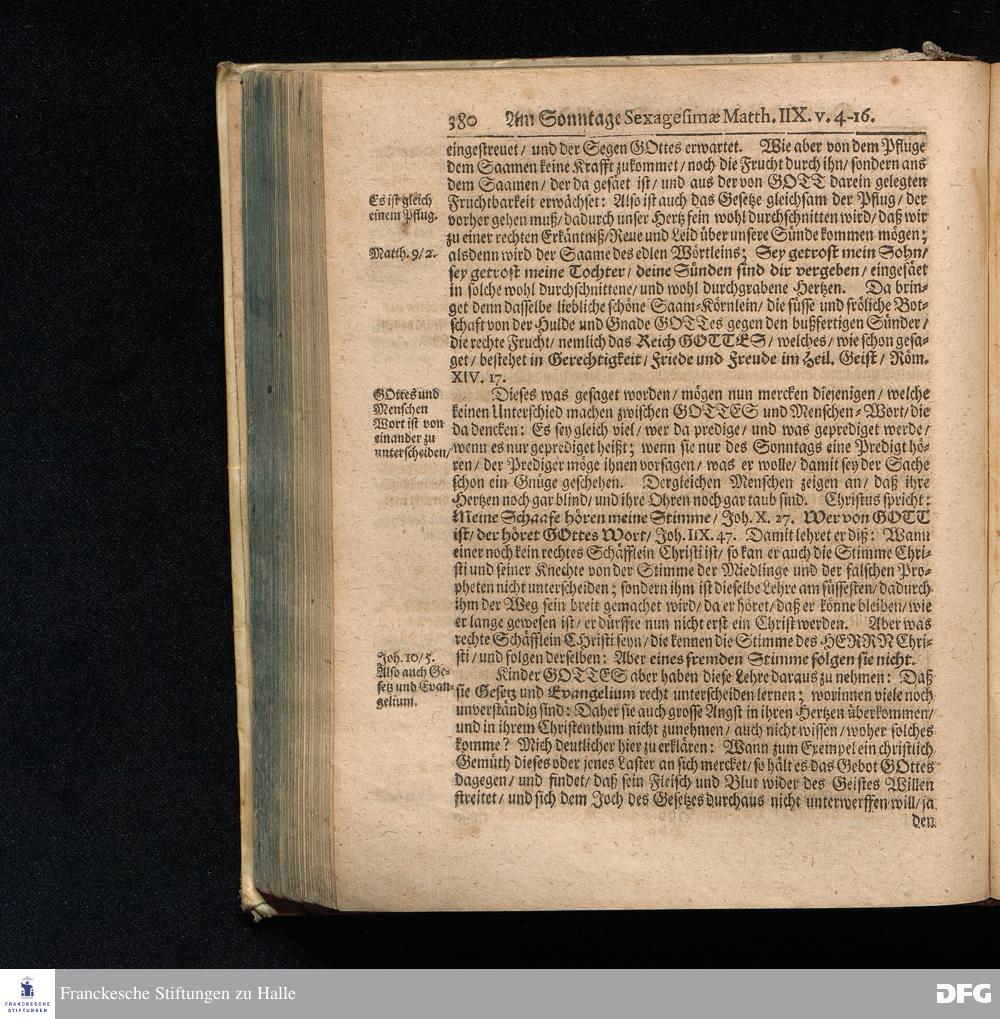 380 Am Sonntage Sexagesimæ Matth. IIX. v. 4-16.
eingestreuet/ und der Segen GOttes erwartet. Wie aber von dem Pfluge
dem Saamen keine Krafft zukommet/ noch die Frucht durch ihn/ sondern aus
dem Saamen/ der da gesäet ist/ und aus der von GOTT darein gelegten
Fruchtbarkeit erwächset: Also ist auch das Gesetze gleichsam der Pflug/ der
vorher gehen muß/ dadurch unser Hertz fein wohl durchschnitten wird/ daß wir
zu einer rechten Erkäntniß/ Reue und Leid über unsere Sünde kommen mögen;
alsdenn wird der Saame des edlen Wörtleins; Sey getrost mein Sohn/
sey getrost meine Tochter/ deine Sünden sind dir vergeben/ eingesäet
in solche wohl durchschnittene/ und wohl durchgrabene Hertzen. Da brin-
get denn dasselbe liebliche schöne Saam-Körnlein/ die süsse und fröliche Bot-
schaft von der Hulde und Gnade GOTTes gegen den bußfertigen Sünder/
die rechte Frucht/ nemlich das Reich GOTTES/ welches/ wie schon gesa-
get/ bestehet in Gerechtigkeit/ Friede und Freude im Heil. Geist/ Röm.
XIV. 17.
Es ist gleich
einem Pflug.
Matth. 9/2.
Dieses was gesaget worden/ mögen nun mercken diejenigen/ welche
keinen Unterschied machen zwischen GOTTES und Menschen-Wort/ die
da dencken: Es sey gleich viel/ wer da predige/ und was geprediget werde/
wenn es nur geprediget heißt; wenn sie nur des Sonntags eine Predigt hö-
ren/ der Prediger möge ihnen vorsagen/ was er wolle/ damit sey der Sache
schon ein Gnüge geschehen. Dergleichen Menschen zeigen an/ daß ihre
Hertzen noch gar blind/ und ihre Ohren noch gar taub sind. Christus spricht:
Meine Schaafe hören meine Stimme/ Joh. X. 27. Wer von GOTT
ist/ der höret GOttes Wort/ Joh. IIX. 47. Damit lehret er diß: Wann
einer noch kein rechtes Schäfflein Christi ist/ so kan er auch die Stimme Chri-
sti und seiner Knechte von der Stimme der Miedlinge und der falschen Pro-
pheten nicht unterscheiden; sondern ihm ist dieselbe Lehre am süssesten/ dadurch
ihm der Weg fein breit gemachet wird/ da er höret/ daß er könne bleiben/ wie
er lange gewesen ist/ er dürffte nun nicht erst ein Christ werden. Aber was
rechte Schäfflein CHristi seyn/ die kennen die Stimme des HERRN Chri-
sti/ und folgen derselben: Aber eines fremden Stimme folgen sie nicht.
GOttes und
Menschen
Wort ist von
einander zu
unterscheiden/
Joh. 10/5.
Also auch Ge-
setz und Evan-
gelium.
Kinder GOTTES aber haben diese Lehre daraus zu nehmen: Daß
sie Gesetz und Evangelium recht unterscheiden lernen; worinnen viele noch
unverständig sind: Daher sie auch grosse Angst in ihren Hertzen überkommen/
und in ihrem Christenthum nicht zunehmen/ auch nicht wissen/ woher solches
komme? Mich deutlicher hier zu erklären: Wann zum Exempel ein christlich
Gemüth dieses oder jenes Laster an sich mercket/ so hält es das Gebot GOttes
dagegen/ und findet/ daß sein Fleisch und Blut wider des Geistes Willen
streitet/ und sich dem Joch des Gesetzes durchaus nicht unterwerffen will/ ja
den
FRANCKESCHE
STIFTUNGEN
Franckesche Stiftungen zu Halle
DFG